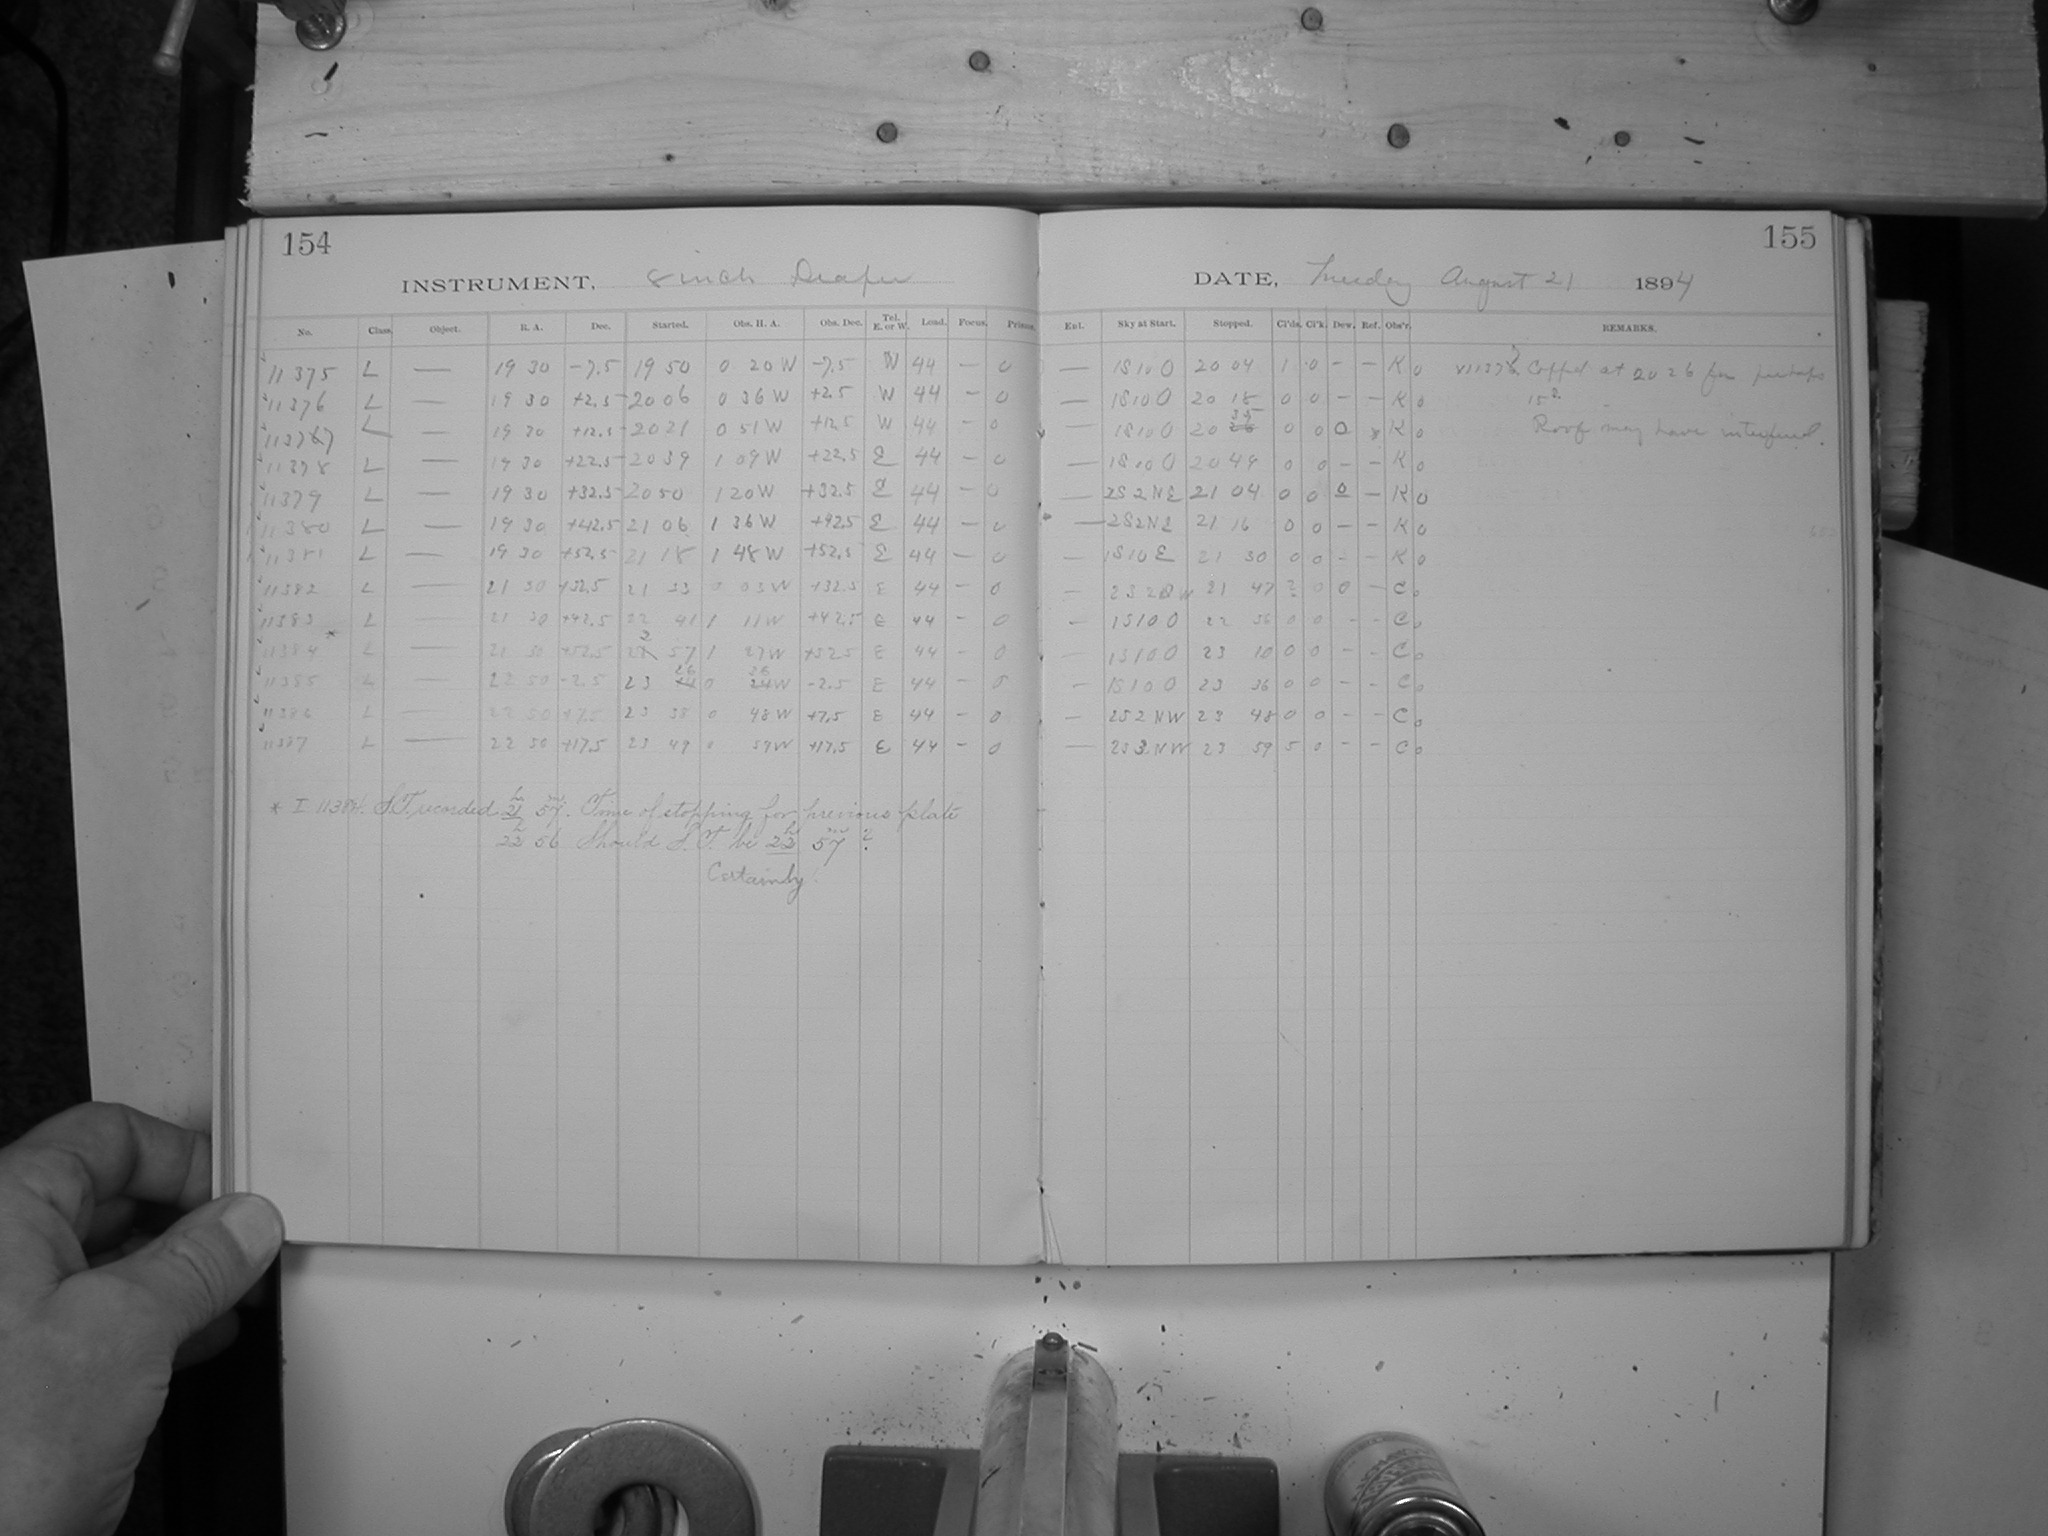 154
INSTRUMENT, 8 inch Draper
No. Class. Object. R. A. Dec. Started. Obs. H. A. Obs. Dec. Tel. E. or W. Load. Focus. Prisms.
11375 L — 19 30 -7.5 19 50 0 20 W -7.5 W 44 — 0
11376 L — 19 30 +2.5 20 06 0 36 W +2.5 W 44 — 0
11377 L — 19 30 +12.5 20 21 0 51 W +12.5 W 44 — 0
11378 L — 19 30 +22.5 20 39 1 09 W +22.5 E 44 — 0
11379 L — 19 30 +32.5 20 50 1 20 W +32.5 E 44 — 0
11380 L — 19 30 +42.5 21 06 1 36 W +42.5 E 44 — 0
11381 L — 19 30 +52.5 21 18 1 48 W +52.5 E 44 — 0
11382 L — 21 30 +32.5 21 33 0 03 W +32.5 E 44 — 0
11383 L — 21 30 +42.5 22 41 1 11 W +42.5 E 44 — 0
11384 * L — 21 30 +52.5 22 57 1 27 W +52.5 E 44 — 0
11385 L — 22 50 -2.5 23 26 0 26 W -2.5 E 44 — 0
11386 L — 22 50 +7.5 23 38 0 48 W +7.5 E 44 — 0
11387 L — 22 50 +17.5 23 49 0 59 W +17.5 E 44 — 0
* I 11384. S.T. recorded 21h 57m. Time of stopping for previous plate
22h 56 Should S.T. be 22h 57m?
Certainly.
155
DATE, Tuesday August 21 1894
Ent. Sky at Start. Stopped. Cl'ds. Cl'k. Dew. Ref. Obs'r. REMARKS.
— 1S10 0 20 04 1 0 - - K 0 11378? Capped at 20 26 for perhaps
— 1S10 0 20 18 0 0 - - K 0 15s.
— 1S10 0 20 35 0 0 0 K 0 Roof may have interfered.
— 1S10 0 20 49 0 0 - - K 0
— 2S2NE 21 04 0 0 0 - K 0
— 2S2NE 21 16 0 0 - - K 0
— 1S10E 21 30 0 0 - - K 0
— 21 47 2 0 0 - C 0
— 1S10 0 22 56 0 0 - - C 0
— 1S10 0 23 10 0 0 - - C 0
— 1S10 0 23 36 0 0 - - C 0
— 2S2NW 23 48 0 0 - - C 0
— 2S3NW 23 59 5 0 - - C 0